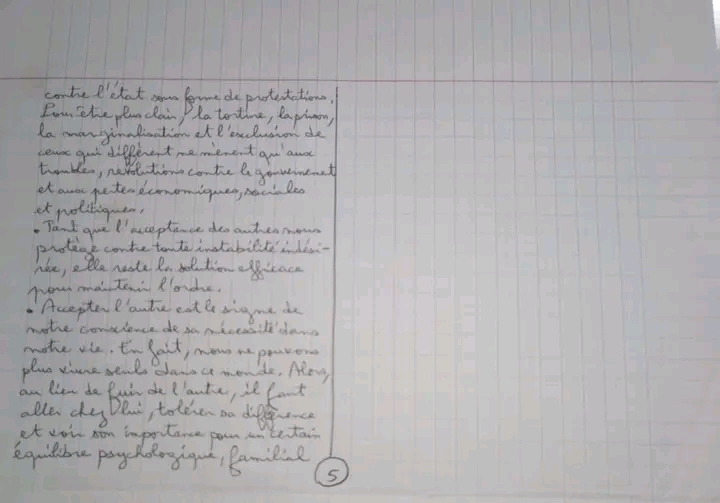 contre l'état sous forme de protestations.
Pour être plus clair, la torture, la prison,
la marginalisation et l'exclusion de
ceux qui diffèrent ne mènent qu'aux
troubles, revolutions contre le gouvernement
et aux pertes économiques, sociales
et politiques.
• Tant que l'acceptance des autres nous
protège contre toute instabilité indési-
rée, elle reste la solution efficace
pour maintenir l'ordre.
• Accepter l'autre est le signe de
notre conscience de sa nécessité dans
notre vie. En fait, nous ne pouvons
plus vivre seuls dans ce monde. Alors,
au lieu de fuir de l'autre, il faut
aller chez lui, tolérer sa différence
et voir son importance pour un certain
équilibre psychologique, familial
5